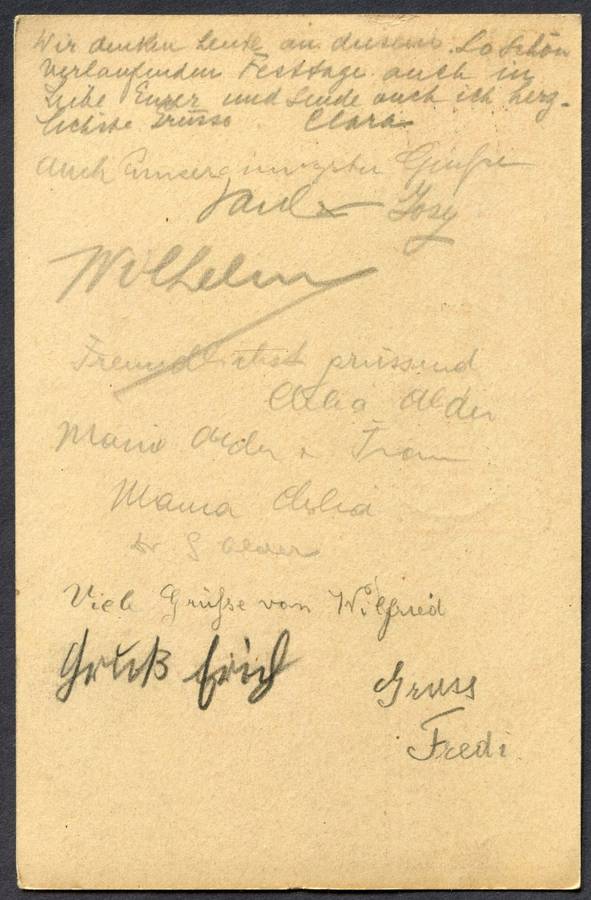 Wir denken heute an diesem so schön
verlaufenden Festtage auch in
Liebe Eurer und sende auch ich herz-
lichste Grüsse Clara
auch unsere Grüße
Paul Josy
Wilhelm
Freundlichst grüssend
Alder
Alder u. Frau
Mama
Dr Alder
Viele Grüsse von Wilfried
Gruß Erich
Gruss
Fredi